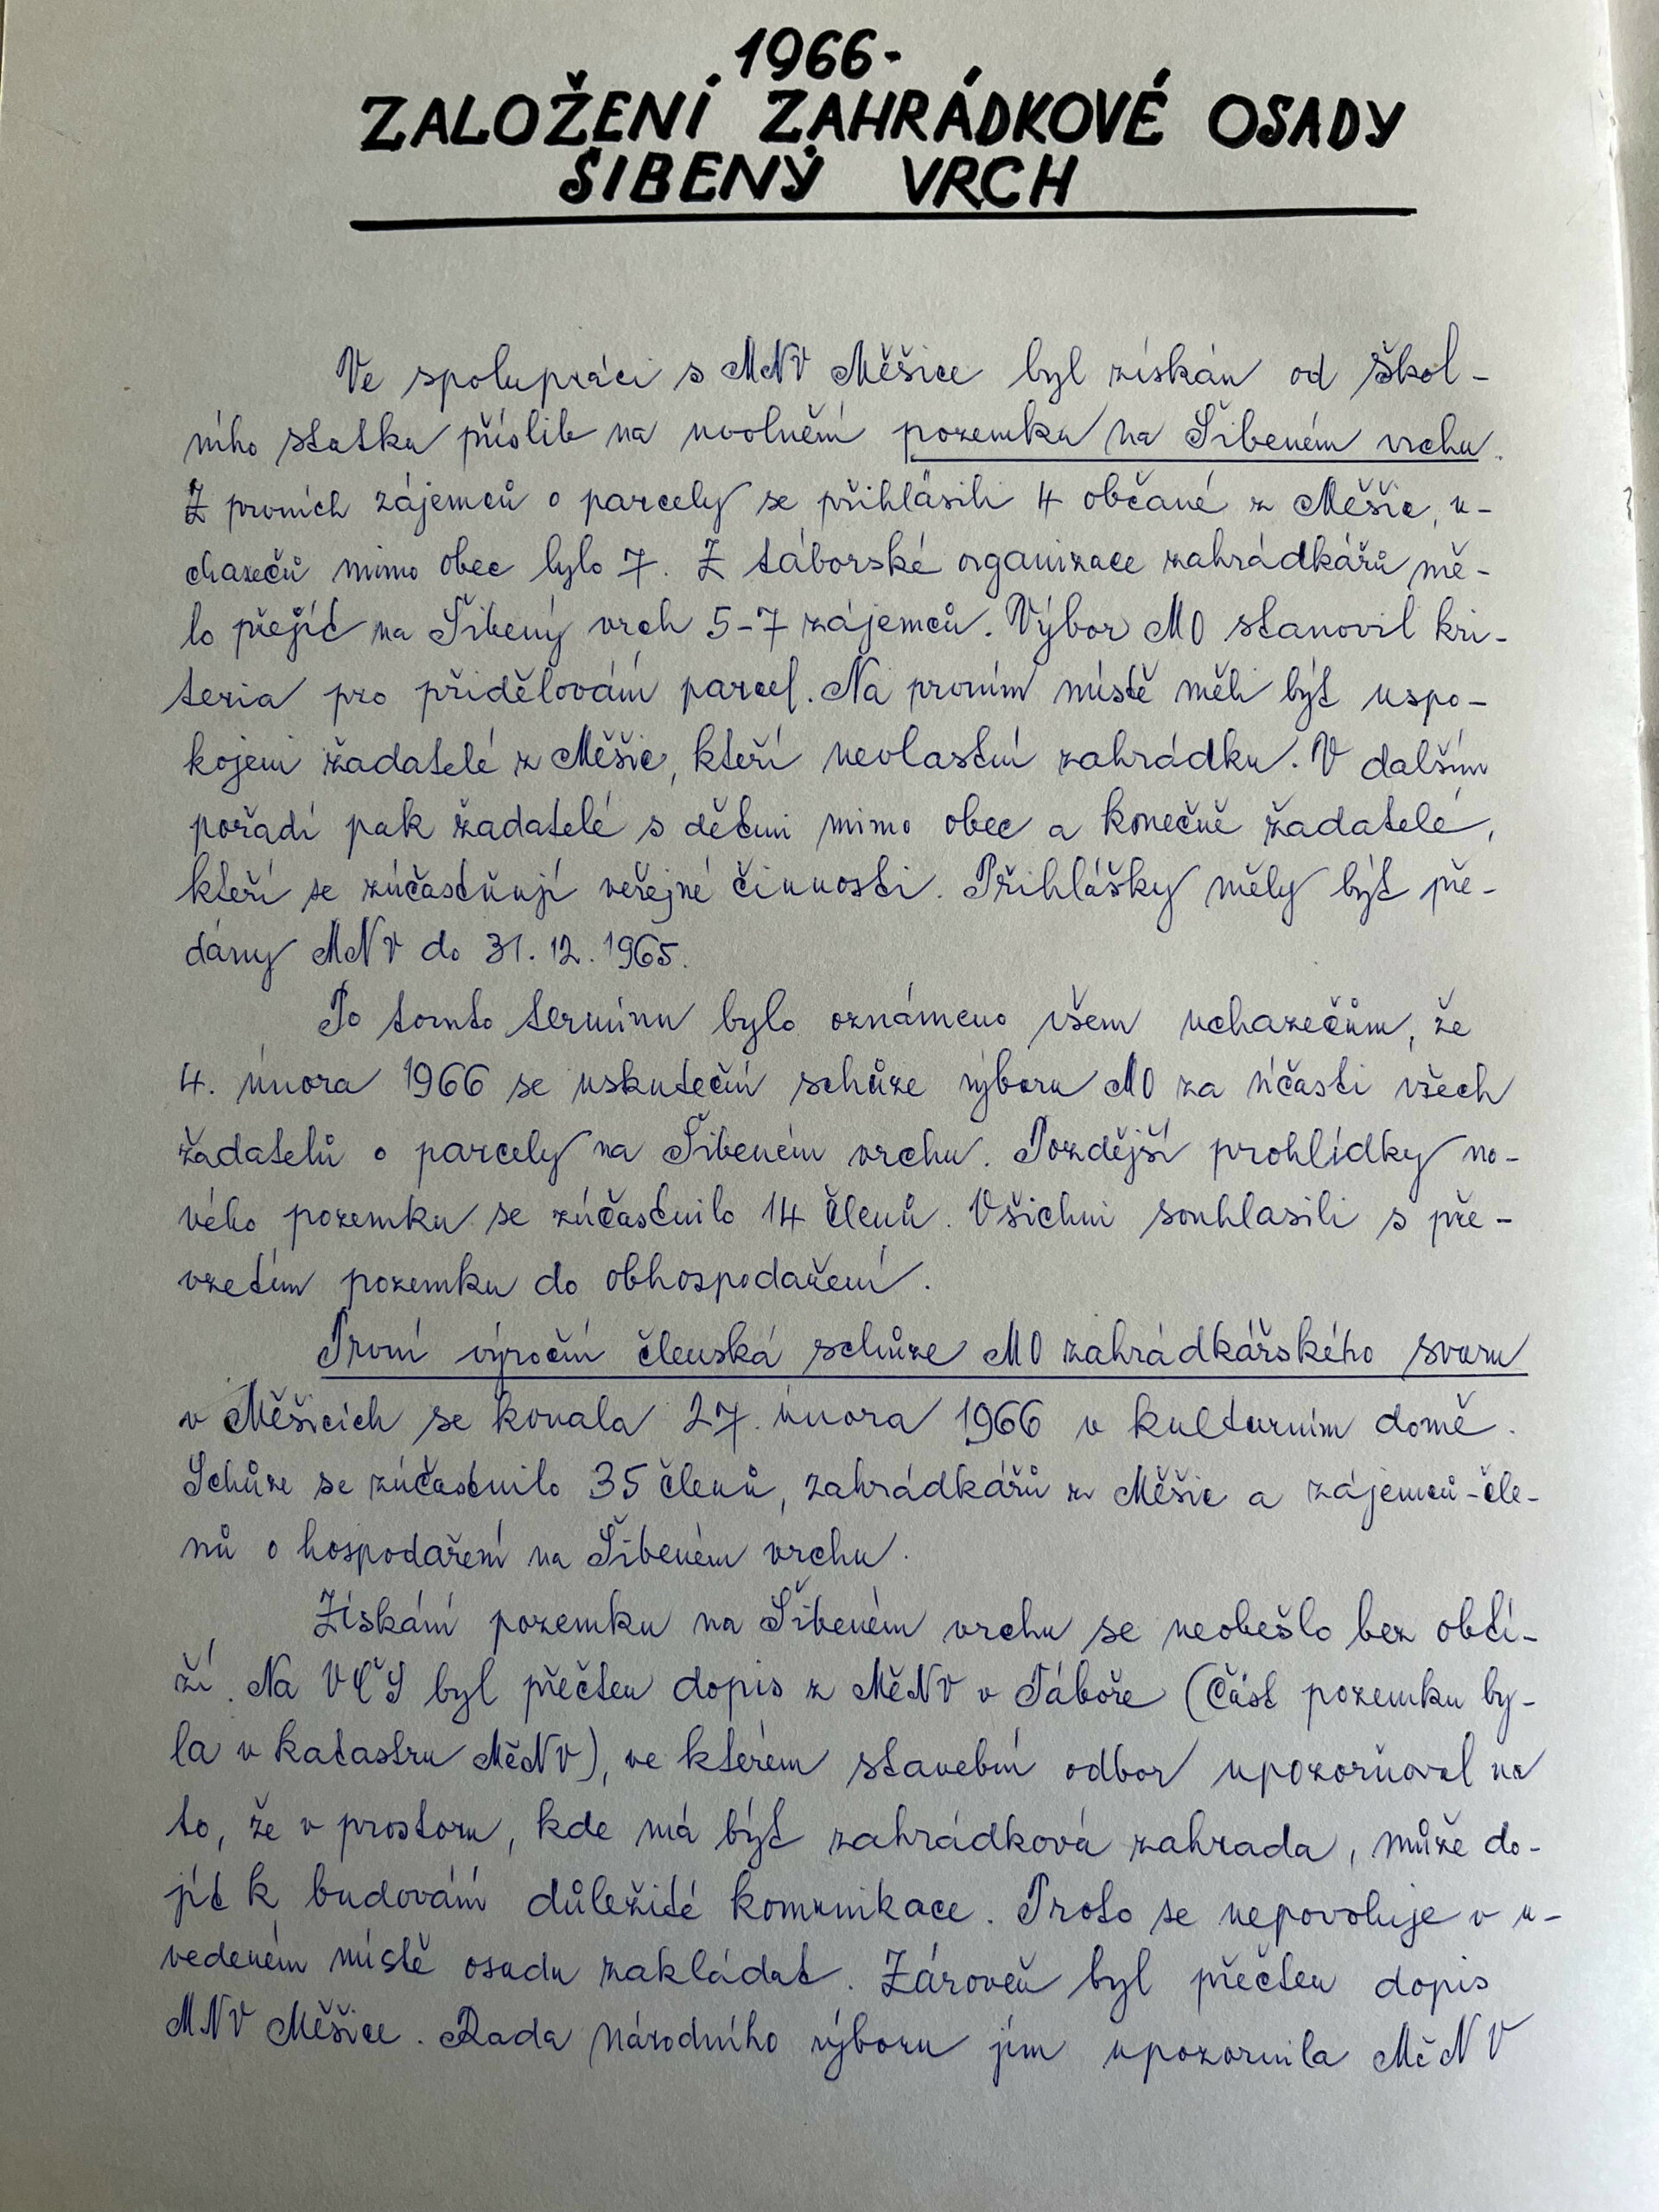 1966-
ZALOŽENÍ ZAHRÁDKOVÉ OSADY
ŠIBENÝ VRCH
Ve spolupráci s MNV Měšice byl získán od škol-
ního statku příslib na uvolnění pozemku na Šibeném vrchu.
Z prvních zájemců o parcely se přihlásili 4 občané z Měšic, u-
chazečů mimo obec bylo 7. Z táborské organizace zahrádkářů mě-
lo přejít na Šibený vrch 5-7 zájemců. Výbor MO stanovil kri-
teria pro přidělování parcel. Na prvním místě měli být uspo-
kojeni žadatelé z Měšic, kteří nevlastní zahrádku. V dalším
pořadí pak žadatelé s dětmi mimo obec a konečně žadatelé,
kteří se zúčastňují veřejné činnosti. Přihlášky měly být pře-
dány MNV do 31. 12. 1965.
Po tomto termínu bylo oznámeno všem uchazečům, že
4. února 1966 se uskuteční schůze výboru MO za účasti všech
žadatelů o parcely na Šibeném vrchu. Pozdější prohlídky no-
vého pozemku se zúčastnilo 14 členů. Všichni souhlasili s pře-
vzetím pozemku do obhospodaření.
První výroční členská schůze MO zahrádkářského svazu
v Měšicích se konala 27. února 1966 v kulturním domě.
Schůze se zúčastnilo 35 členů, zahrádkářů z Měšic a zájemců-čle-
nů o hospodaření na Šibeném vrchu.
Získání pozemku na Šibeném vrchu se neobešlo bez obtí-
ží. Na VČS byl přečten dopis z MěNV v Táboře (část pozemku by-
la v katastru MěNV), ve kterém stavební odbor upozorňoval na
to, že v prostoru, kde má být zahrádková zahrada, může do-
jít k budování důležité komunikace. Proto se nepovoluje v u-
vedeném místě osadu zakládat. Zároveň byl přečten dopis
MNV Měšice. Rada národního výboru jím upozornila MěNV